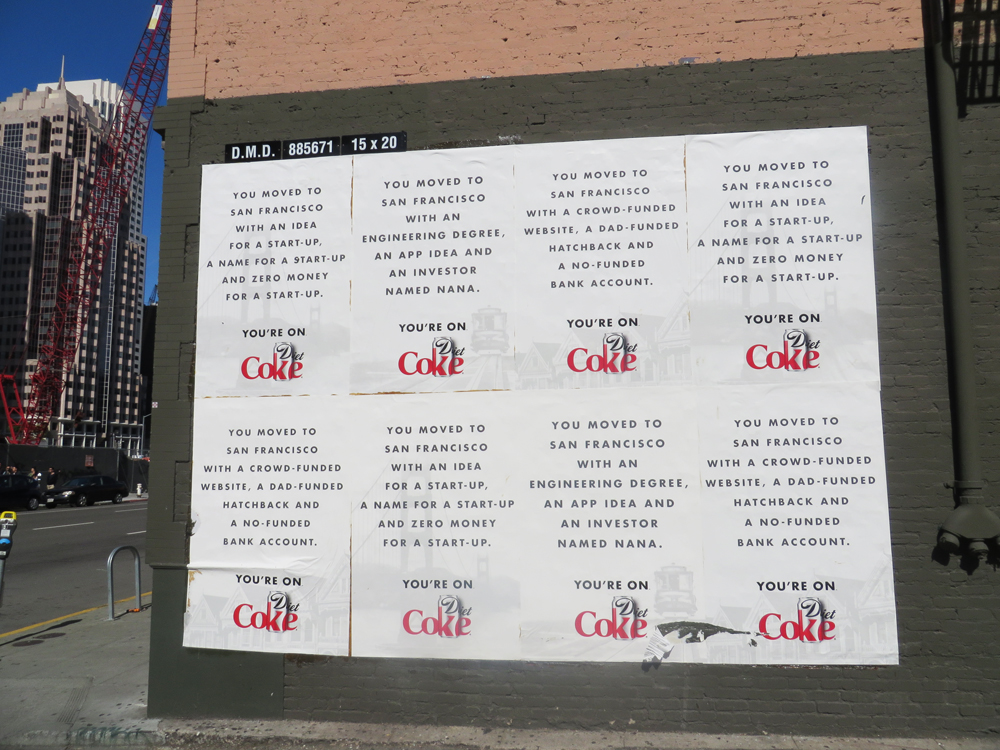 D.M.D. 885671 15 x 20
YOU MOVED TO
SAN FRANCISCO
WITH AN IDEA
FOR A START-UP,
A NAME FOR A START-UP
AND ZERO MONEY
FOR A START-UP.
YOU'RE ON
Diet
Coke
YOU MOVED TO
SAN FRANCISCO
WITH AN
ENGINEERING DEGREE,
AN APP IDEA AND
AN INVESTOR
NAMED NANA.
YOU'RE ON
Diet
Coke
YOU MOVED TO
SAN FRANCISCO
WITH A CROWD-FUNDED
WEBSITE, A DAD-FUNDED
HATCHBACK AND
A NO-FUNDED
BANK ACCOUNT.
YOU'RE ON
Diet
Coke
YOU MOVED TO
SAN FRANCISCO
WITH AN IDEA
FOR A START-UP,
A NAME FOR A START-UP
AND ZERO MONEY
FOR A START-UP.
YOU'RE ON
Diet
Coke
YOU MOVED TO
SAN FRANCISCO
WITH A CROWD-FUNDED
WEBSITE, A DAD-FUNDED
HATCHBACK AND
A NO-FUNDED
BANK ACCOUNT.
YOU'RE ON
Diet
Coke
YOU MOVED TO
SAN FRANCISCO
WITH AN IDEA
FOR A START-UP,
A NAME FOR A START-UP
AND ZERO MONEY
FOR A START-UP.
YOU'RE ON
Diet
Coke
YOU MOVED TO
SAN FRANCISCO
WITH AN
ENGINEERING DEGREE,
AN APP IDEA AND
AN INVESTOR
NAMED NANA.
YOU'RE ON
Diet
Coke
YOU MOVED TO
SAN FRANCISCO
WITH A CROWD-FUNDED
WEBSITE, A DAD-FUNDED
HATCHBACK AND
A NO-FUNDED
BANK ACCOUNT.
YOU'RE ON
Diet
Coke